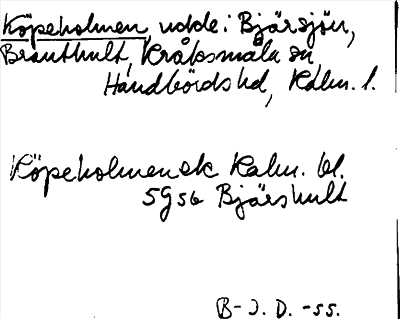 Köpeholmen, udde i Bjärsjön,
Branthult, Kråksmåla sn,
Handbörds hd, Kalm. l.
Köpeholmen ek Kalm. bl.
5G5b Bjärshult
B-J. D. -55.